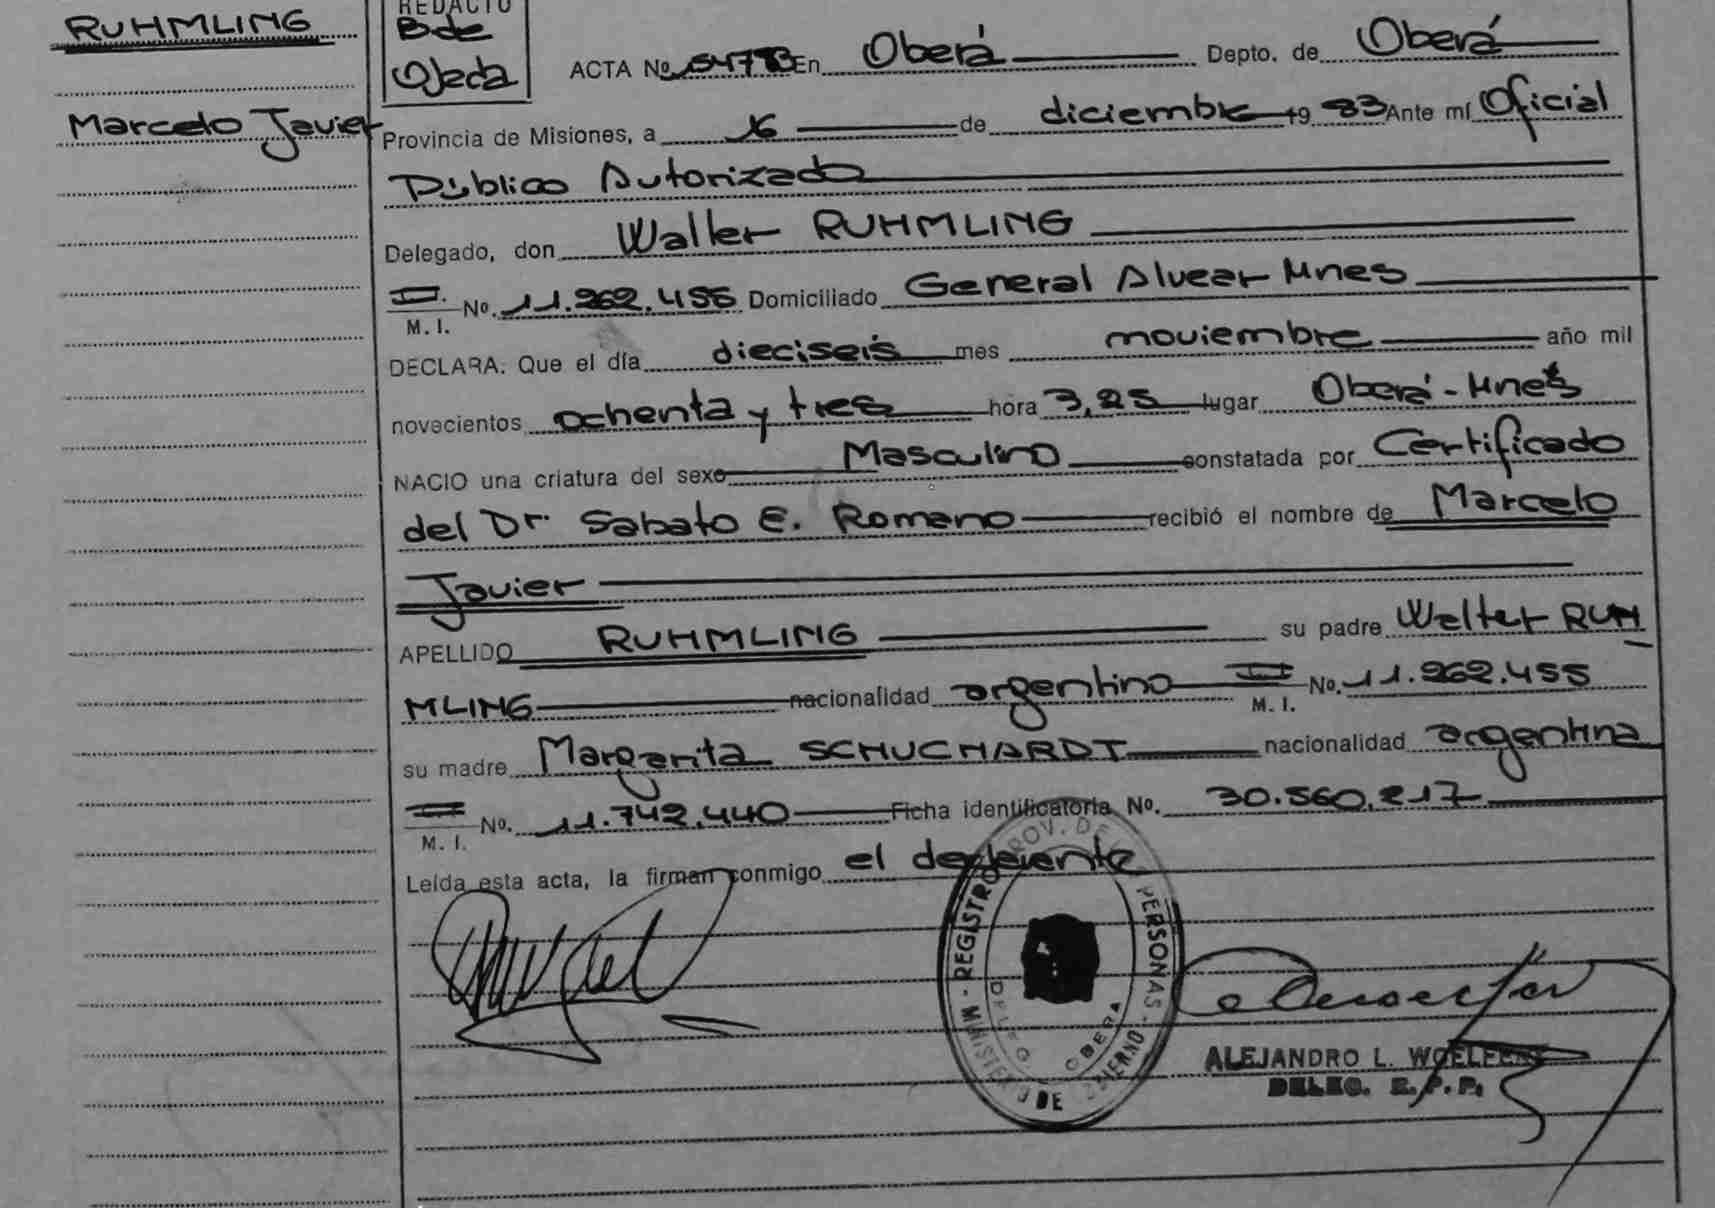 RUHMLING
Marcelo Javier
REDACTO
B de
Ojeda
ACTA No. 54783 En Oberá Depto. de Oberá
Provincia de Misiones, a 16 de diciembre 19 83 Ante mí Oficial
Público Autorizado
Delegado, don Walter RUHMLING
M. I. No. 11.262.455 Domiciliado General Alvear Mnes
DECLARA: Que el día dieciseis mes noviembre año mil
novecientos ochenta y tres hora 3,25 lugar Oberá - Mnes
NACIO una criatura del sexo Masculino constatada por Certificado
del Dr. Sabato E. Romano recibió el nombre de Marcelo
Javier
APELLIDO RUHMLING su padre Walter RUH
MLING nacionalidad argentino M. I. No. 11.262.455
su madre Margarita SCHUCHARDT nacionalidad argentina
M. I. No. 11.742.440 Ficha identificatoria No. 30.560.217
Leída esta acta, la firman conmigo el declarante
REGISTRO PROV. DE PERSONAS
MINISTERIO DE GOBIERNO
DELEG. OBERA
ALEJANDRO L.
DELEG. R. P. P.